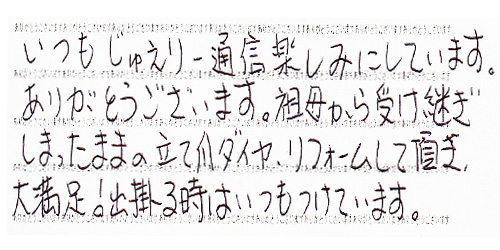 いつもじゅえりー通信楽しみにしています。
ありがとうございます。祖母から受け継ぎ
しまったままの立て爪ダイヤ、リフォームして頂き、
大満足!出掛る時はいつもつけています。